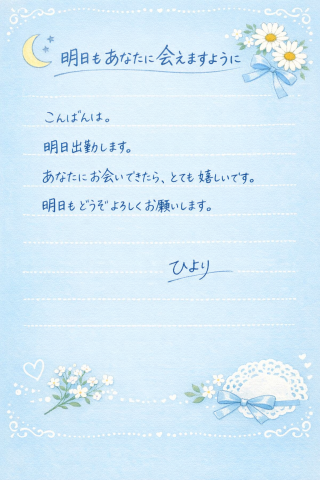 明日もあなたに会えますように
こんばんは。
明日出勤します。
あなたにお会いできたら、とても嬉しいです。
明日もどうぞよろしくお願いします。
ひより